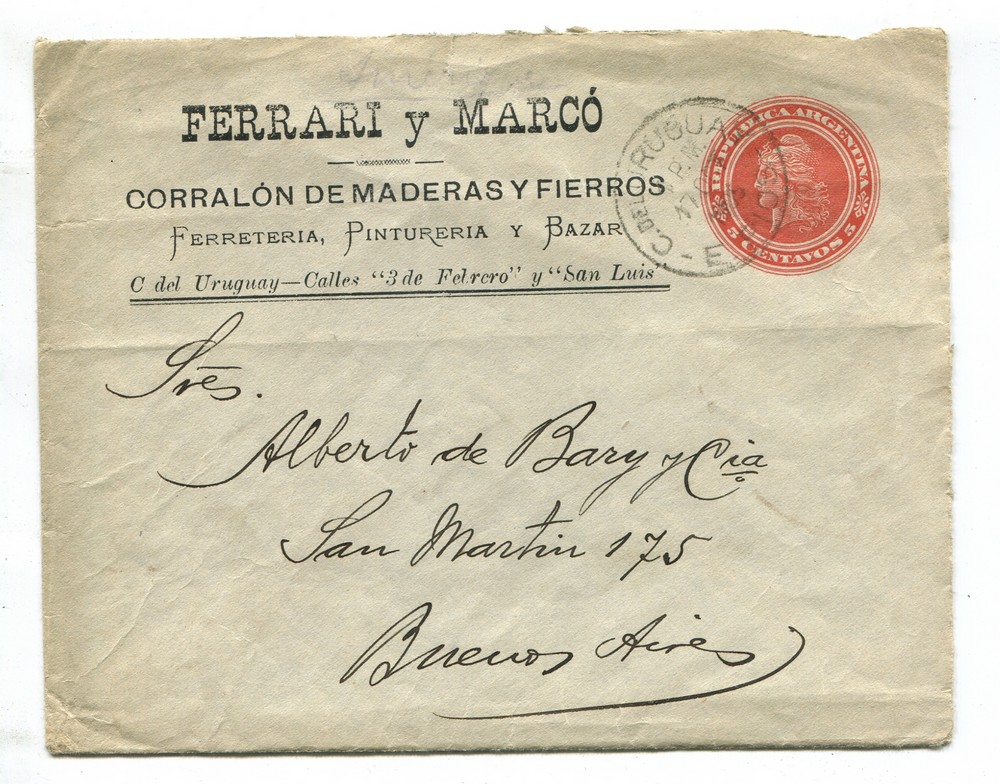 FERRARI y MARCÓ
CORRALÓN DE MADERAS Y FIERROS
FERRETERIA, PINTURERIA Y BAZAR
C del Uruguay—Calles "3 de Febrero" y "San Luis"
REPUBLICA ARGENTINA
5 CENTAVOS 5
C. DEL URUGUAY
P.M.
E
Sres.
Alberto de Bary y Cia
San Martin 175
Buenos Aires